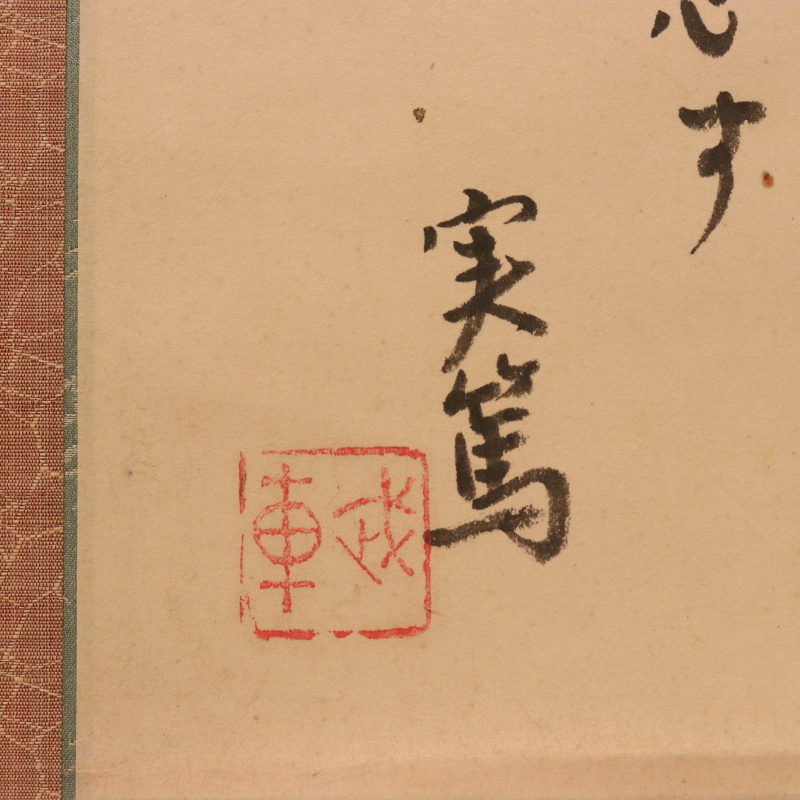 す
実篤
武車